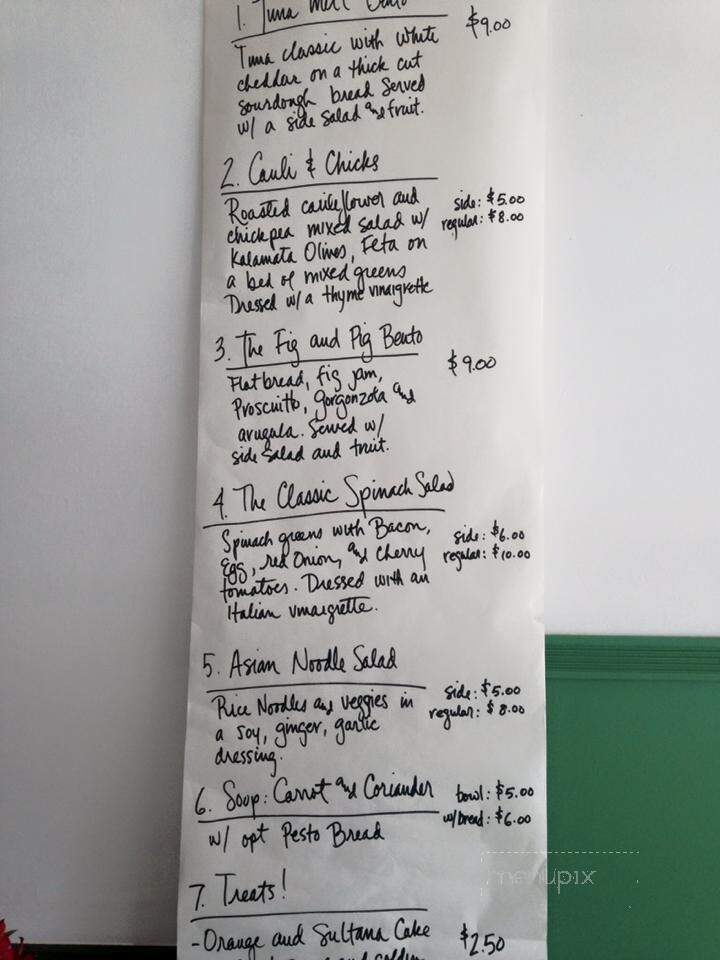 1. Tuna Melt Bento
$9.00
Tuna classic with white
cheddar on a thick cut
sourdough bread served
w/ a side salad and fruit.
2. Cauli & Chicks
Roasted cauliflower and
chickpea mixed salad w/
Kalamata Olives, Feta on
a bed of mixed greens
Dressed w/ a thyme vinaigrette
side: $5.00
regular: $8.00
3. The Fig and Pig Bento
$9.00
Flatbread, fig jam,
Proscuitto, gorgonzola and
arugala. Served w/
side salad and fruit.
4. The Classic Spinach Salad
Spinach greens with Bacon,
Egg, red Onion, and Cherry
tomatoes. Dressed with an
Italian vinaigrette.
side: $6.00
regular: $10.00
5. Asian Noodle Salad
Rice Noodles and veggies in
a soy, ginger, garlic
dressing.
side: $5.00
regular: $8.00
6. Soup: Carrot and Coriander
w/ opt Pesto Bread
bowl: $5.00
w/bread: $6.00
7. Treats!
-Orange and Sultana Cake
$2.50
menupix